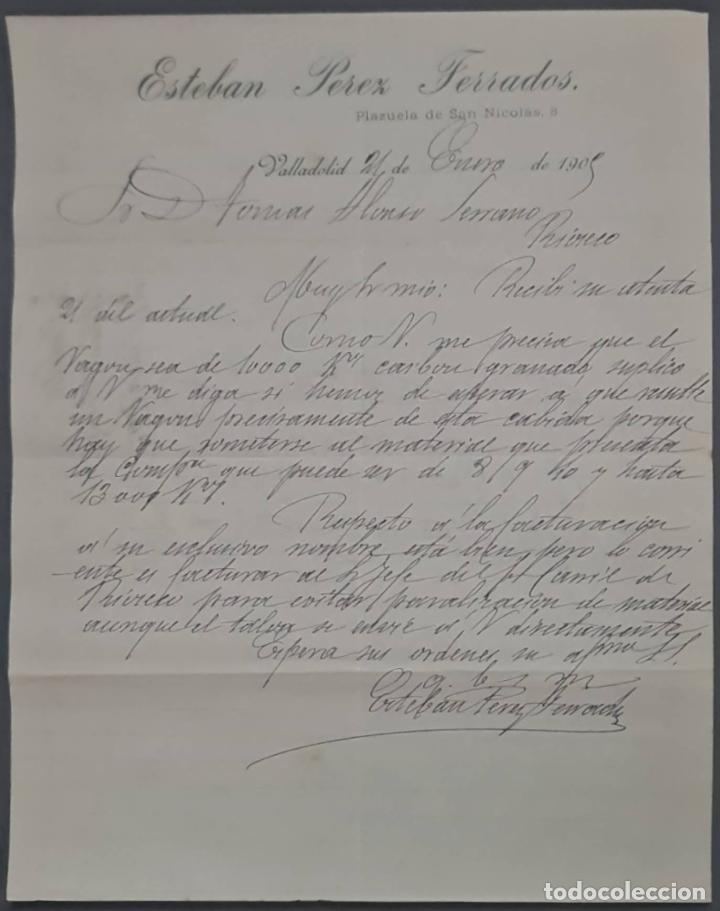 Esteban Perez Ferrados.
Plazuela de San Nicolás, 8
Valladolid 21 de Enero de 1905
Sr D Tomas Alonso Serrano
Rioseco
Muy Sr mio: Recibi su atenta
21 del actual.
Como V. me precisa que el
Vagon sea de 10000 Ks carbon granado suplico
á V me diga si hemos de esperar á que resulte
un Vagon precisamente de esta cabida porque
hay que someterse al material que presenta
la Compª que puede ser de 8 9 10 y hasta
13000 Ks.
Respecto á la facturacion
á su exclusivo nombre está bien pero lo corri
ente es facturar al Sr Jefe del F. Carril de
Rioseco para evitar paralizacion de material
aunque el talon se envie á V directamente
Espera sus ordenes su afmo S.S.
q. b. s. m
Esteban Perez Ferrados
todocoleccion